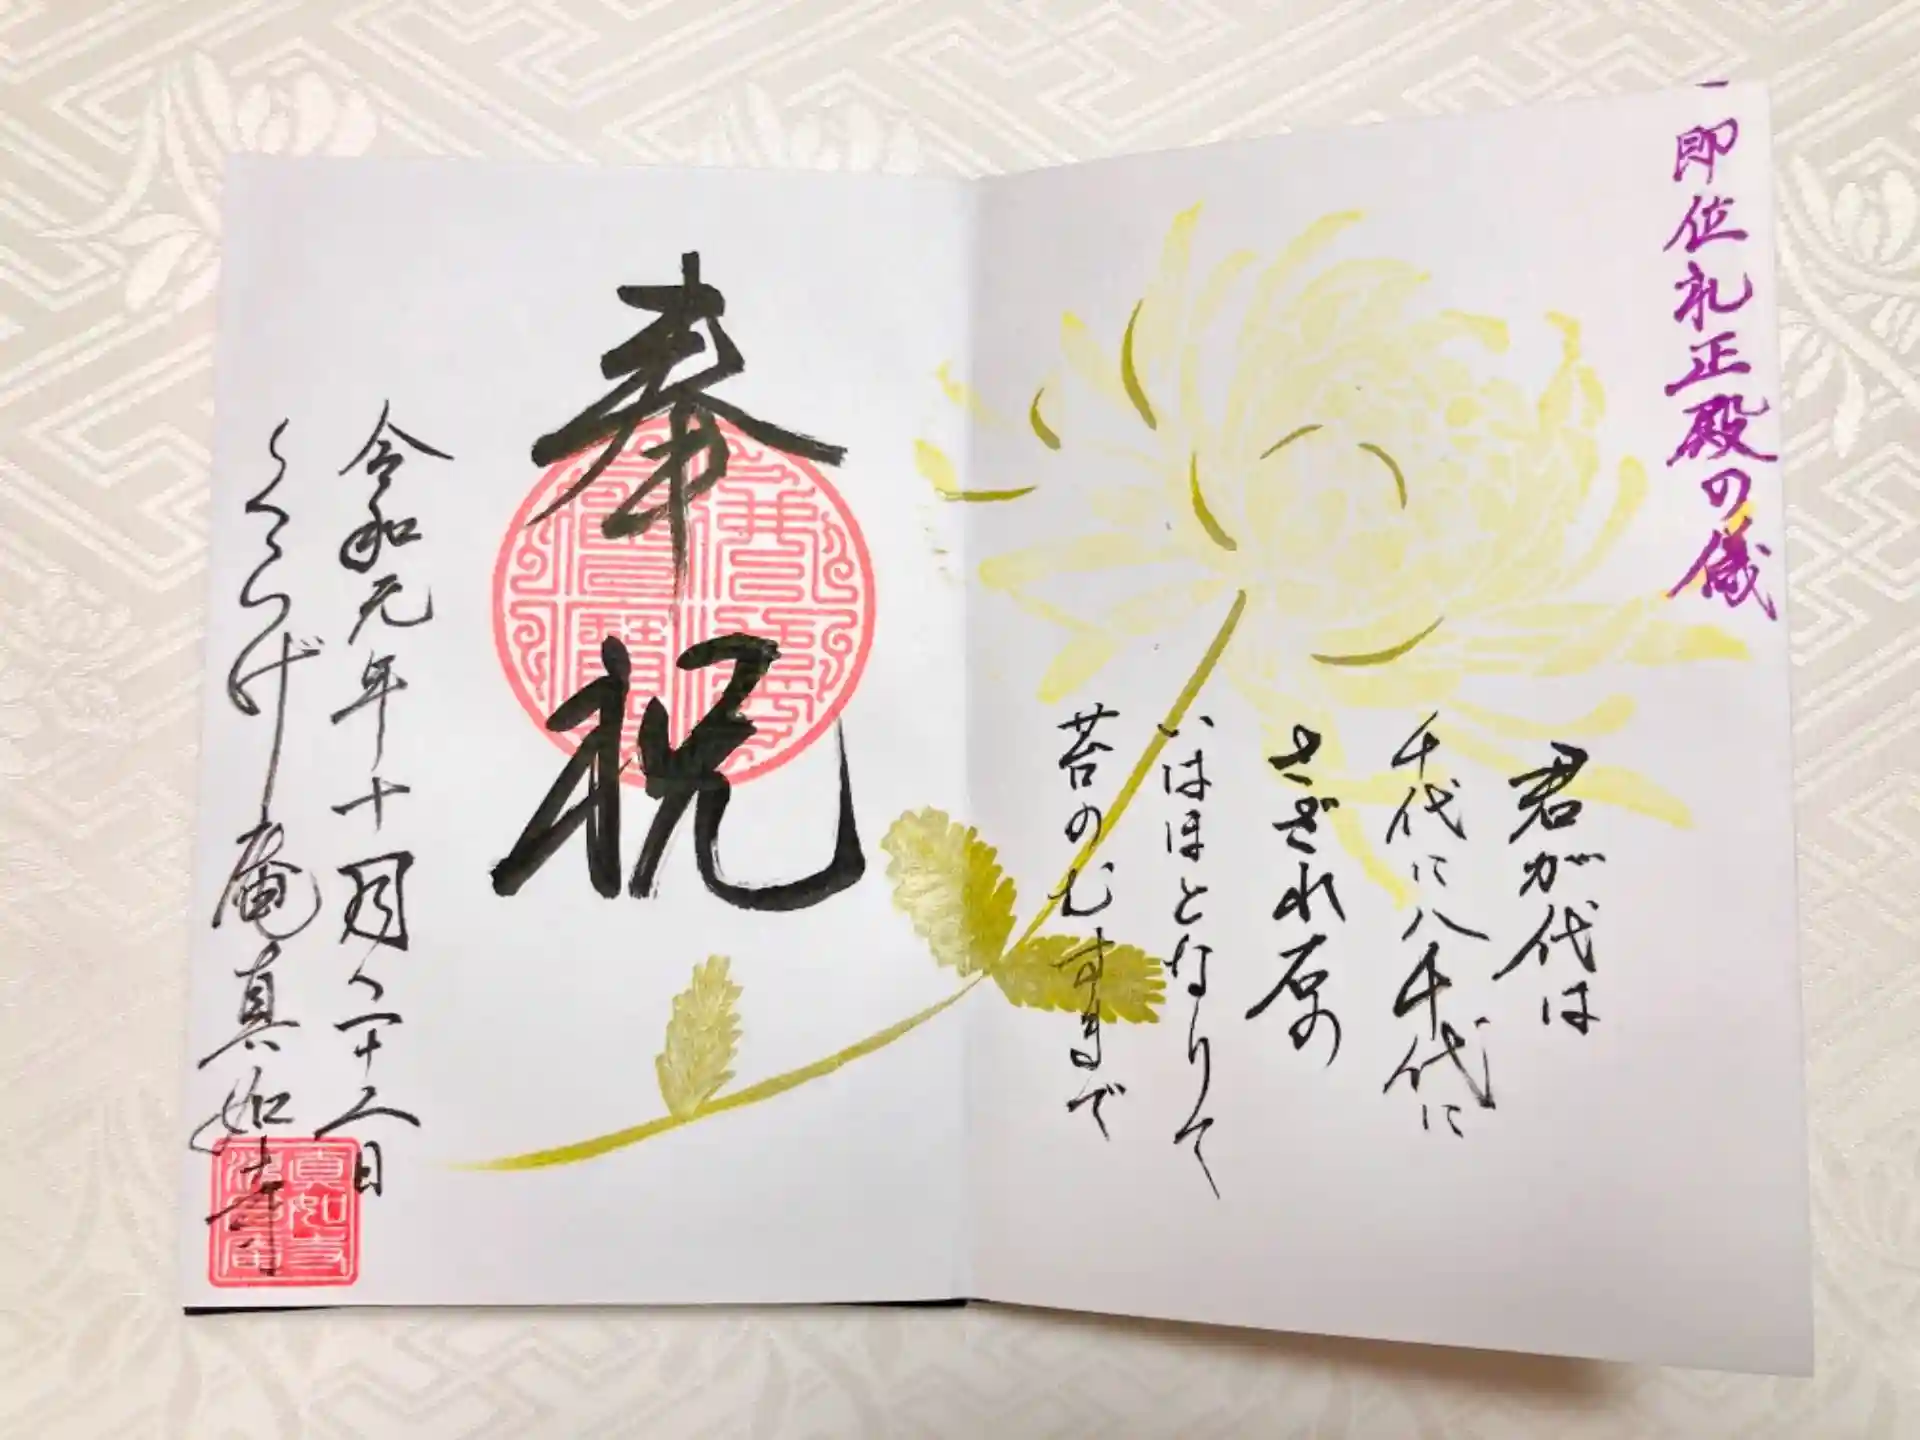 一即位礼正殿の儀
君が代は
千代に八千代に
さざれ石の
いはほとなりて
苔のむすまで
奉祝
令和元年十月二十二日
くらげ庵真如寺